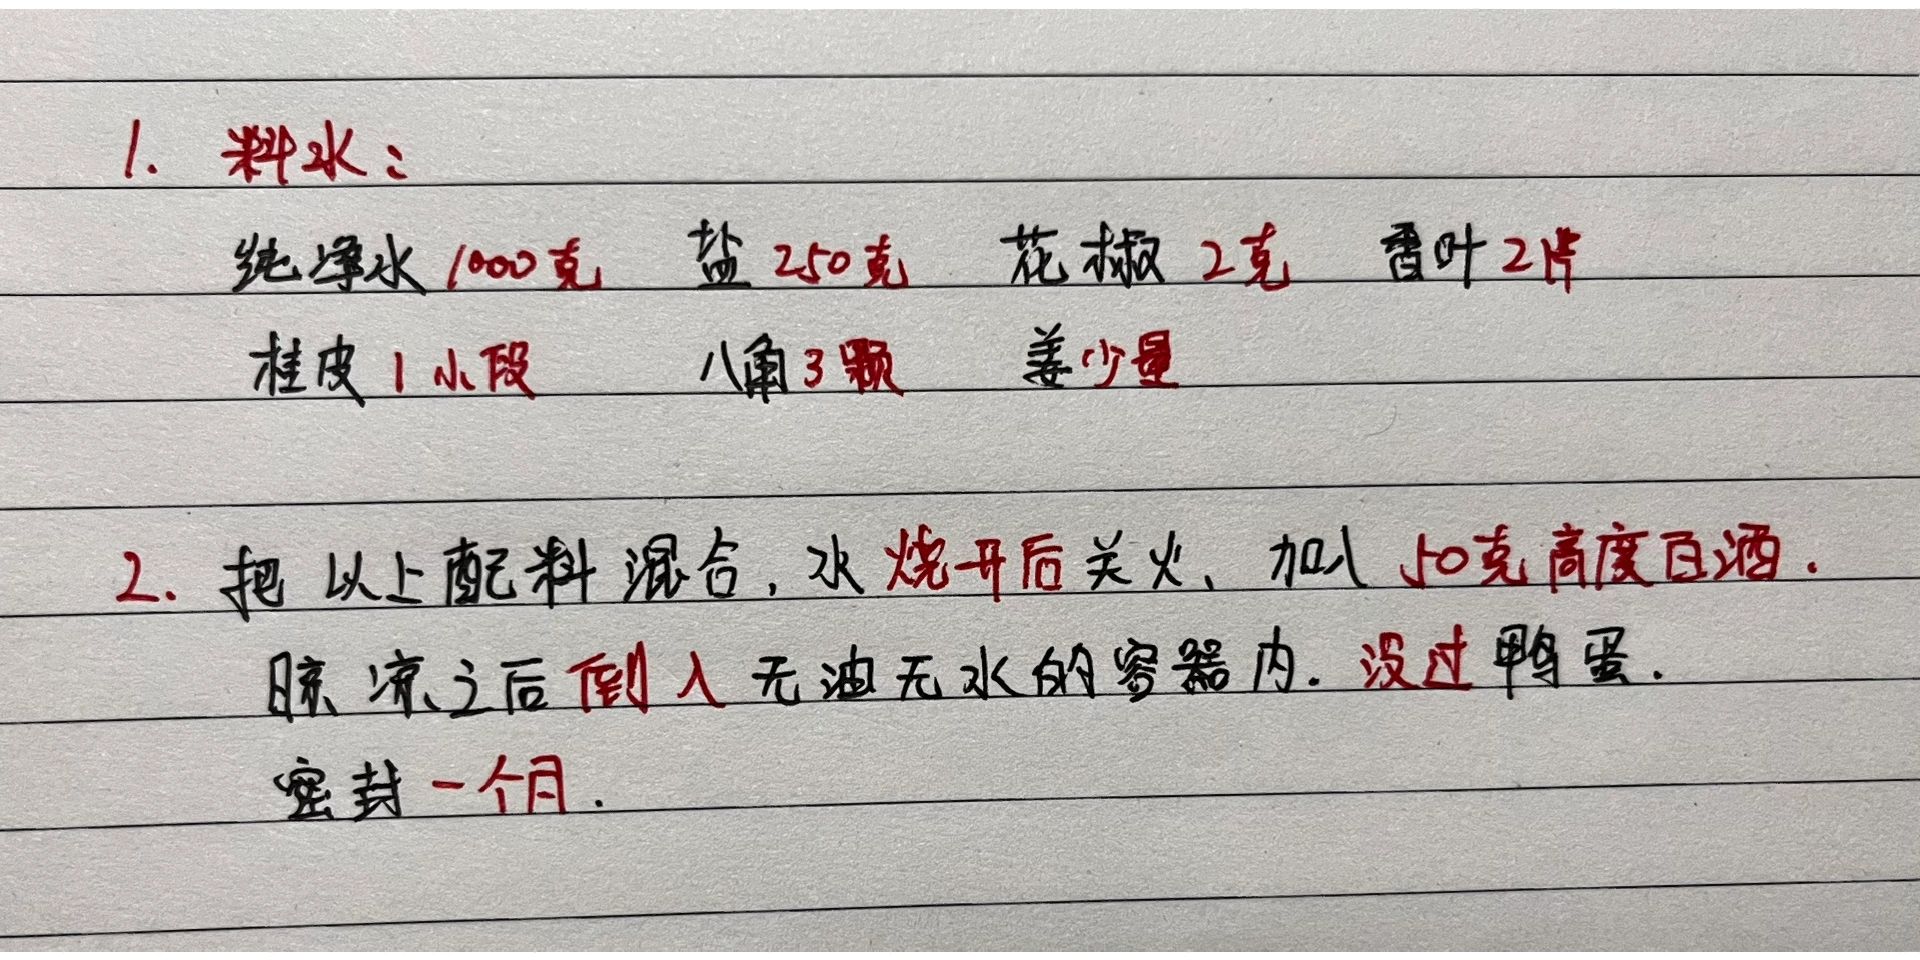 1. 料水：
纯净水 1000克 盐 250克 花椒 2克 香叶 2片
桂皮 1小段 八角 3颗 姜少量
2. 把以上配料混合，水烧开后关火、加入50克高度白酒.
晾凉之后倒入无油无水的容器内. 没过鸭蛋.
密封一个月.